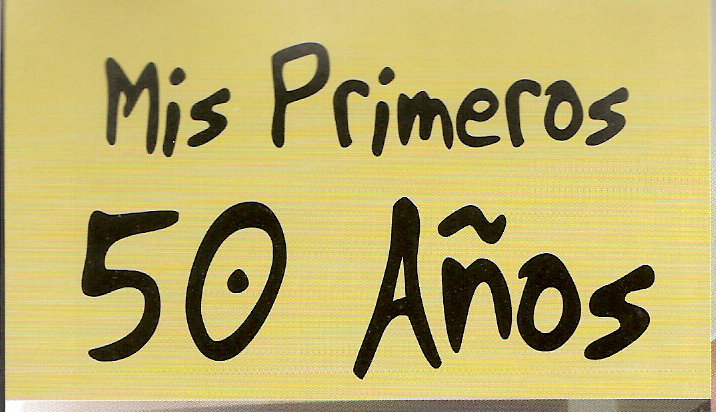 Mis Primeros
50 Años